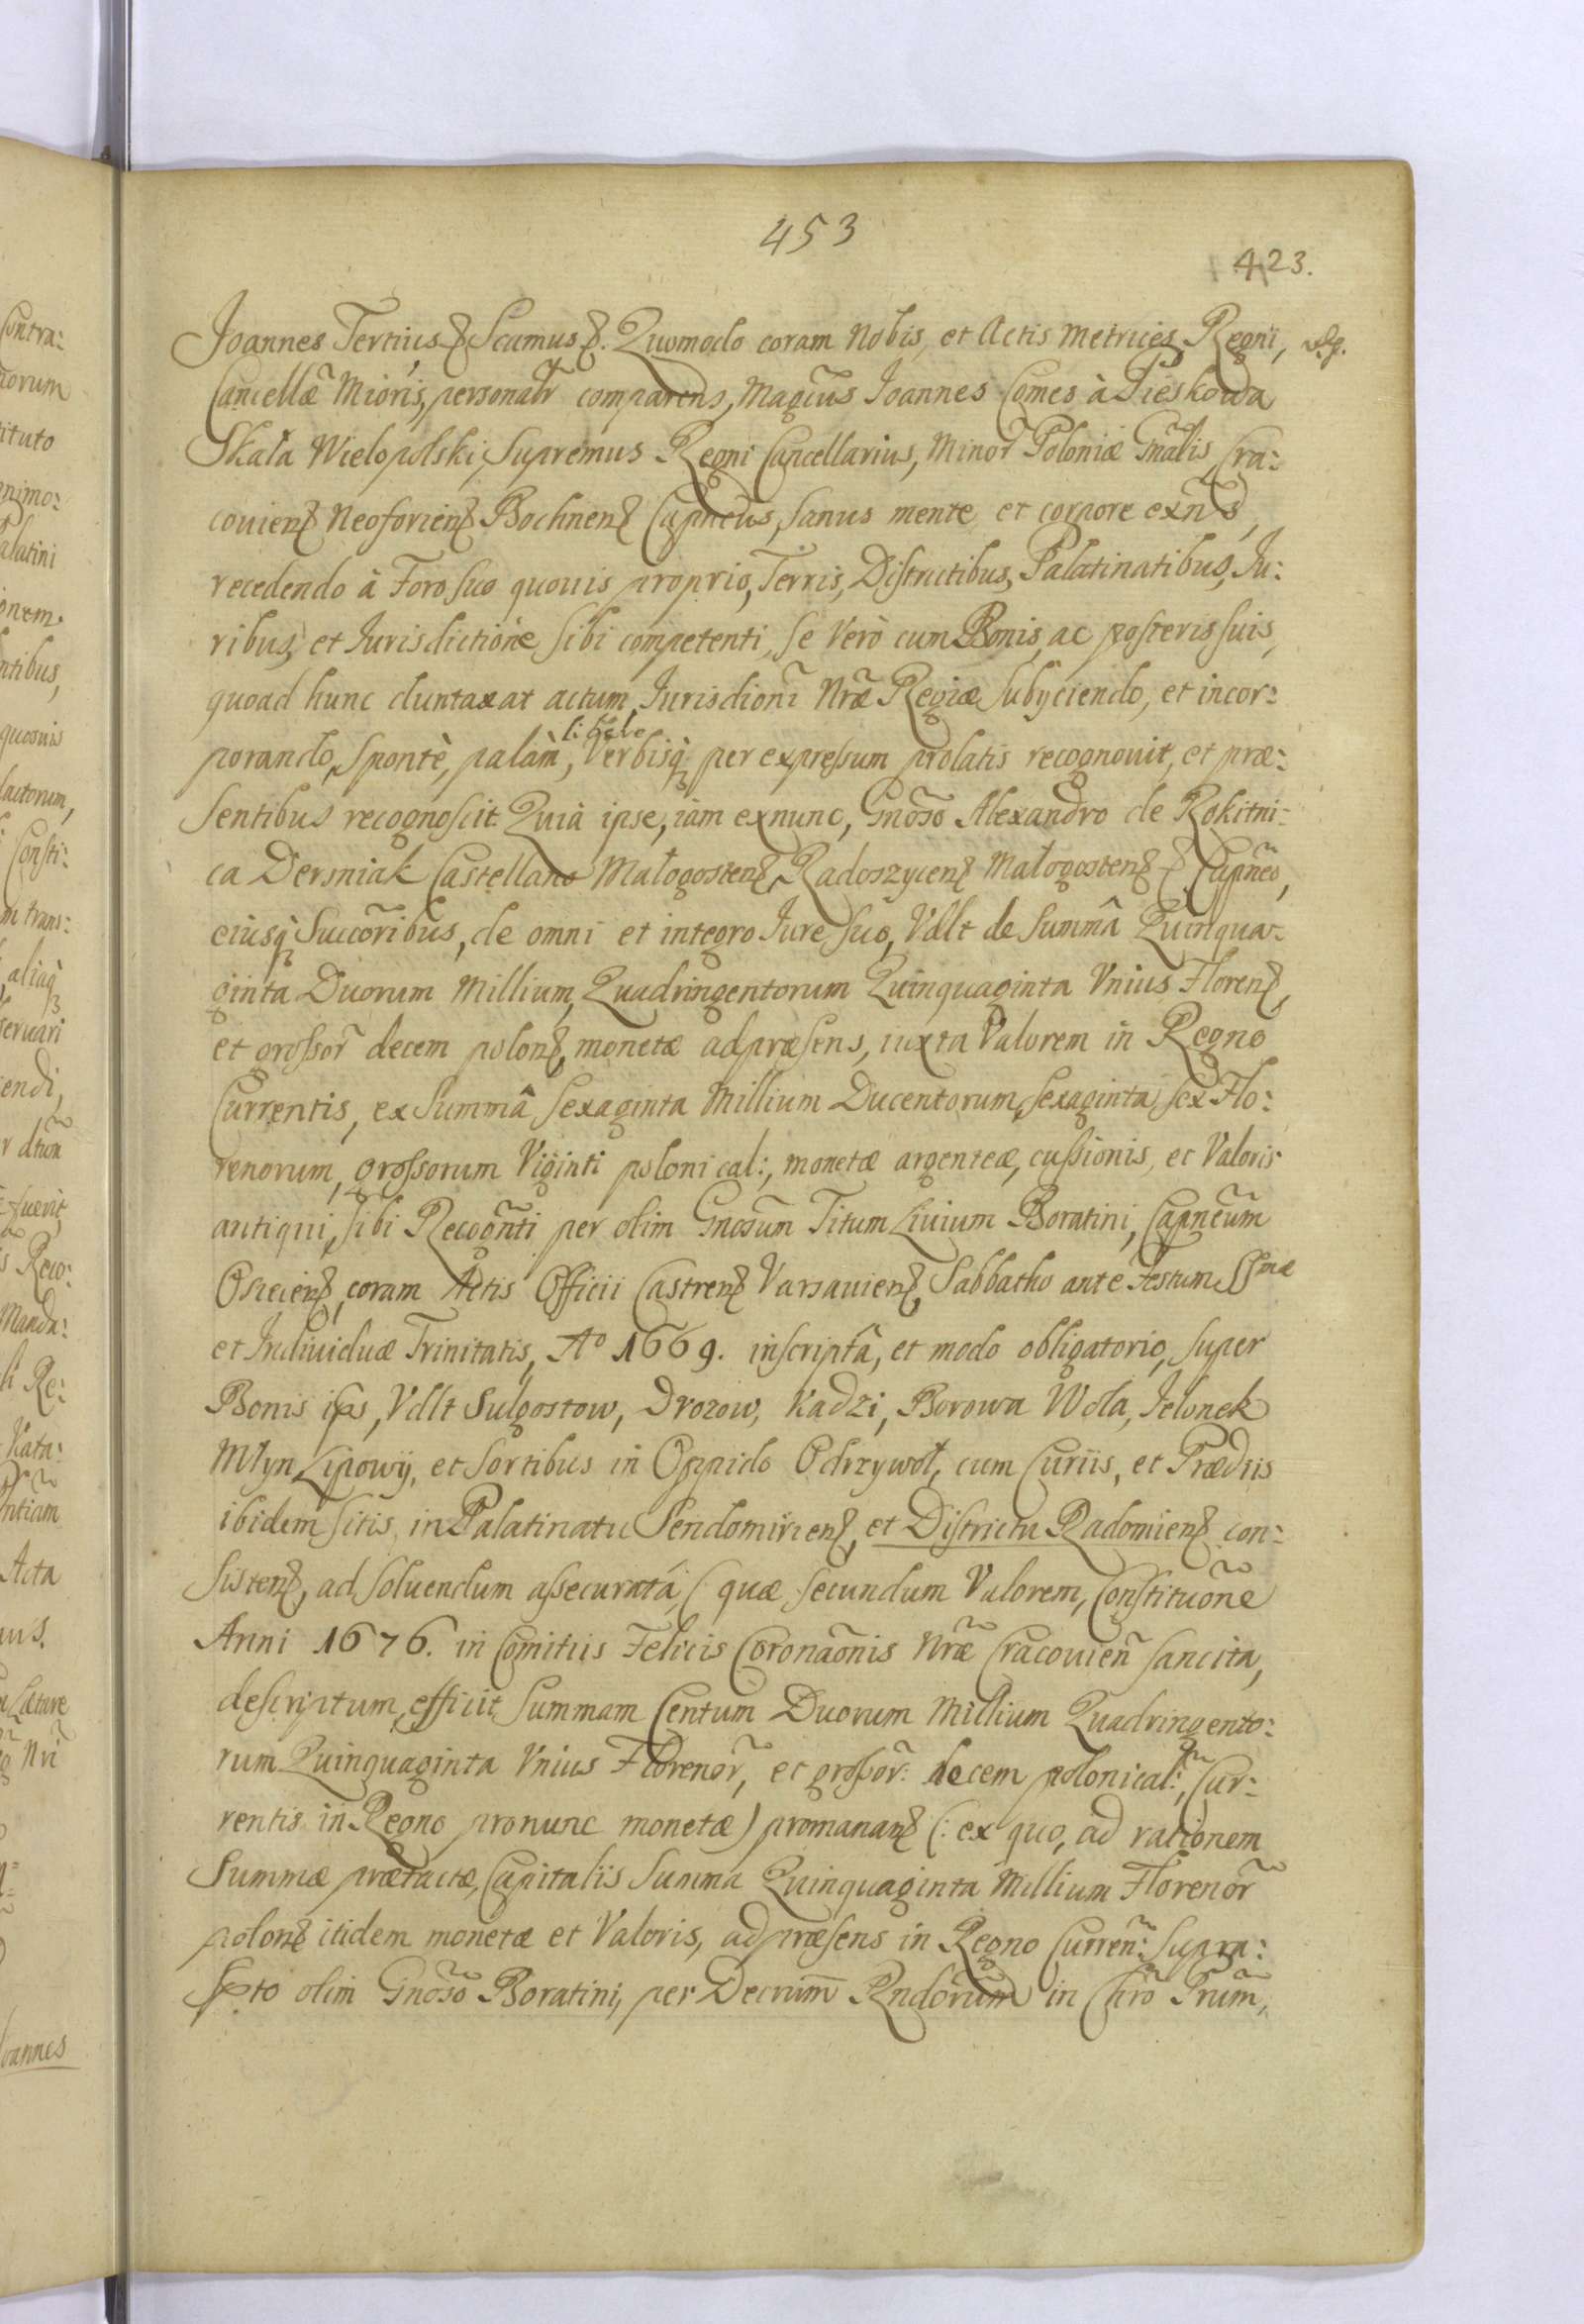 453
423.
Joannes Tertius etc. Scumus etc. Quomodo coram Nobis, et Actis Metrices Regni,
Cancellæ Mioris, personalr comparens, Magcus Joannes Comes à Pieskowa
Skała Wielopolski, Supremus Regni Cancellarius, Minor Poloniæ Gnalis, Cra:
couien Neoforien Bochnen Capneus, sanus mente et corpore exns,
recedendo à Foro suo quouis proprio, Terris, Districtibus, Palatinatibus, Iu:
ribus, et Iurisdictione sibi competenti, se Verò cum Bonis, ac posteris suis,
quoad hunc duntaxat actum, Iurisdioni Nræ Regiæ Subyciendo, et incor:
porando, Spontè, palàm, Verbisq per expressum prolatis recognouit, et præ:
sentibus recognoscit. Quià ipse, iàm exnunc, Gnoso Alexandro de Rokitni:
ca Dersniak Castellano Małogosten, Radoszycen Małogosten etc. Capneo,
eiusq Succoribus, de omni et integro Iure suo, Vdlt de Summâ Quinqua:
ginta Duorum Millium, Quadringentorum Quinquaginta Vnius Floren,
et grossor decem polon, monetæ adpræsens, iuxta Valorem in Regno
Currentis, ex Summâ sexaginta Millium Ducentorum, sexaginta sex Flo:
renorum, grossorum Viginti polonical:, monetæ argenteæ, cussionis, et Valoris
antiqui, sibi Recognti per olim Gnosum Titum Liuium Boratini, Capneum
Osiecien, coram Actis Officii Castren Varsauien, Sabbatho ante Festum SSmæ
et Indiuiduæ Trinitatis, Ao 1669. inscriptâ, et modo obligatorio, super
Bonis ips, Vdlt Sulgostow, Drozow, Kadzi, Borowa Wola, Jelonek
Młyn Lipowy, et Sortibus in Oppido Odrzywoł, cum Curiis, et Prædiis
ibidem sitis, in Palatinatu Sendomirien, et Districtu Radomien con:
sisten, ad soluendum assecuratâ, ( quæ secundum Valorem, Constituone
Anni 1676. in Comitiis Felicis Coronaonis Nræ Cracouien sancita,
descriptum, efficit Summam Centum Duorum Millium Quadringento:
rum Quinquaginta Vnius Florenor, et grossor: decem polonical:, Cur:
rentis in Regno pronunc monetæ) promanan (: ex quo, ad rationem
Summæ prætactæ, Capitalis Summa Quinquaginta Millium Florenor
polon itidem monetæ et Valoris, adpræsens in Regno Curren: supra:
spto olim Gnoso Boratini, per Decrum Rndorum in Chro Prum,